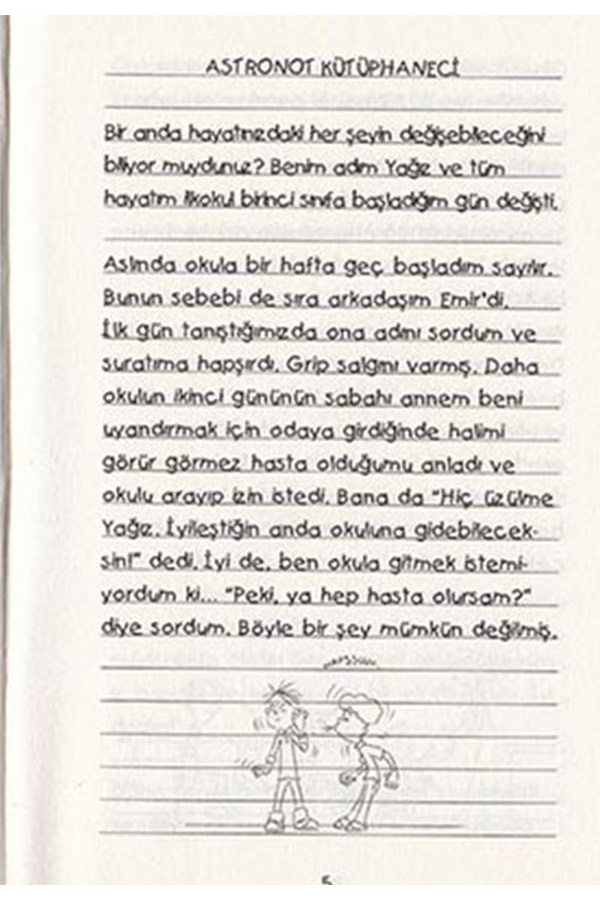 ASTRONOT KÜTÜPHANECİ
Bir anda hayatınızdaki her şeyin değişebileceğini
biliyor muydunuz? Benim adım Yağız ve tüm
hayatım ilkokul birinci sınıfa başladığım gün değişti.
Aslında okula bir hafta geç başladım sayılır.
Bunun sebebi de sıra arkadaşım Emir'di.
İlk gün tanıştığımızda ona adını sordum ve
suratıma hapşırdı. Grip salgını varmış. Daha
okulun ikinci gününün sabahı annem beni
uyandırmak için odaya girdiğinde halimi
görür görmez hasta olduğumu anladı ve
okulu arayıp izin istedi. Bana da "Hiç üzülme
Yağız. İyileştiğin anda okuluna gidebilecek-
sin!" dedi. İyi de, ben okula gitmek istemi-
yordum ki... "Peki, ya hep hasta olursam?"
diye sordum. Böyle bir şey mümkün değilmiş.
5